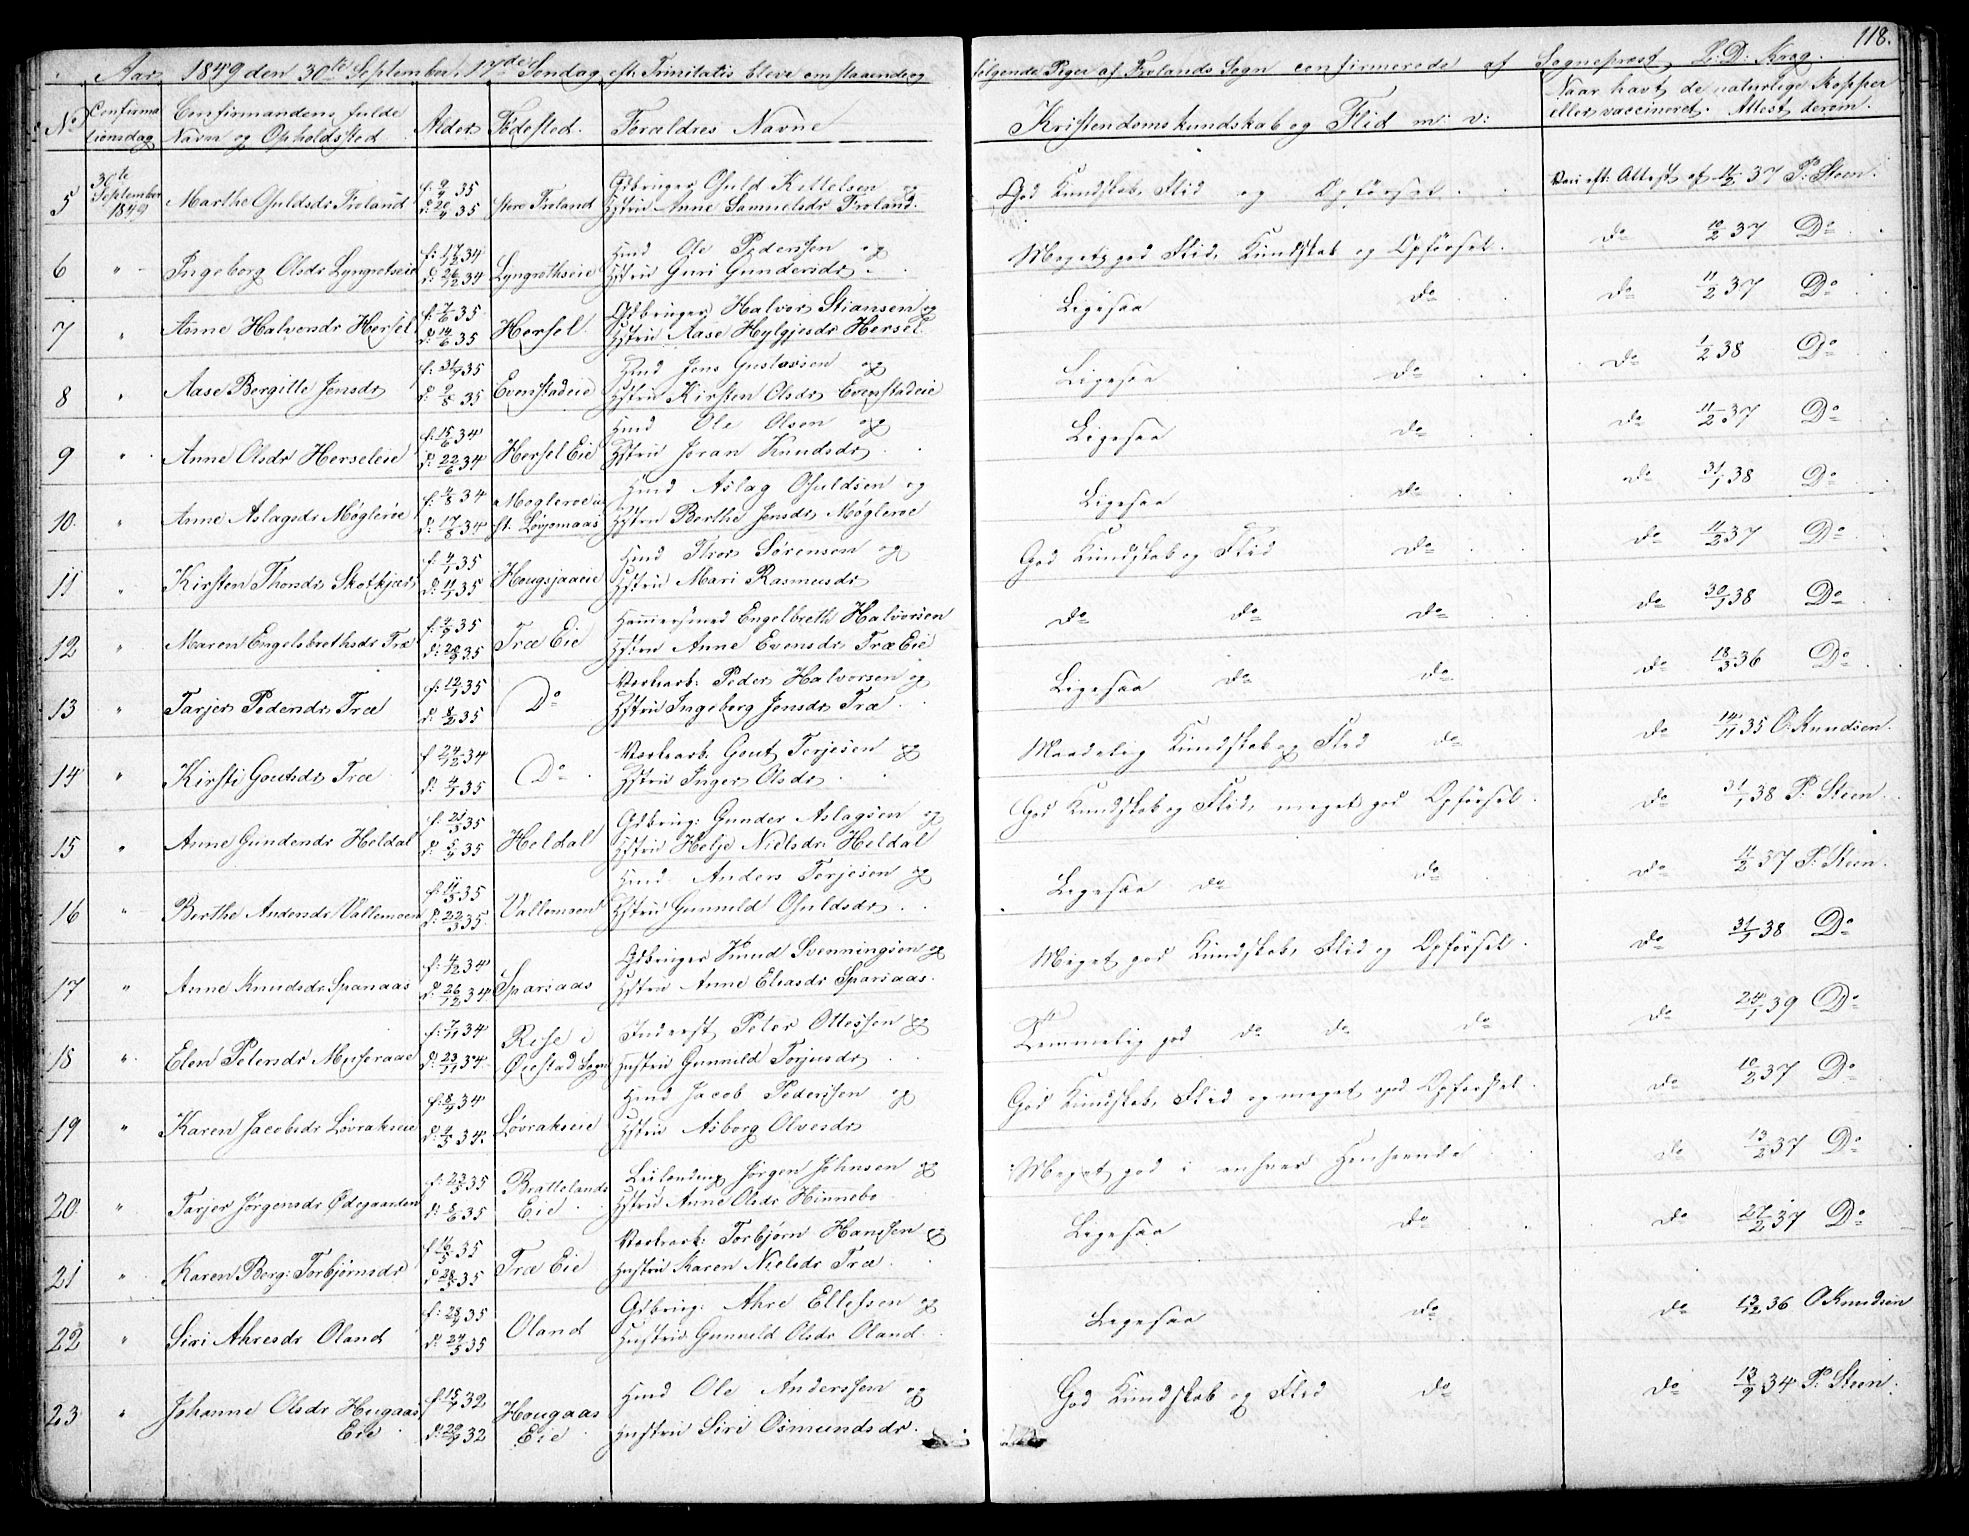 118.
Aar 1849 den 30te September, 17de Søndag eft. Trinitatis bleve omstaaende og følgende Piger af Frolands Sogn confirmerede af Sogneprest L: D: Krog.
No Confirmationsdag Confirmandens fulde Navn og Opholdssted. Alder Fødested. Forældres Navne Kristendomskundskab og Flid m: v: Naar havt de naturlige Kopper eller vaccineret. Attest derom.
5 30te September 1849 Marthe Osuldsdr Froland f: 9/4 35 d: 20/4 35 Store Froland Gdbruger Osuld Kittelsen og Hstru Anne Samuelsdr Froland. God Kundskab, Flid og Opførsel. Vacc. eft. Attest af 11/2 37 P: Steen.
6 " Ingeborg Olsdr Lyngrotheie f: 17/12 34 d: 26/12 34 Lyngrotheie Hmd Ole Pedersen og Hstru Guri Gundersdr. Meget god Flid, Kundskab og Opførsel. do 10/2 37 Do
7 " Anne Halvorsdr Hersel f: 7/6 35 d: 14/6 35 Hersel Gdbruger Halvor Stiansen og Hstru Aase Hylgjesdr Hersel Ligesaa do do 11/2 37 Do
8 " Aase Bergitte Jensdr f: 31/7 35 d: 9/8 35 Evenstadeie Hmd Jens Gustavsen og Hstru Kirsten Olsdr Evenstadeie Ligesaa do do 1/2 38 Do
9 " Anne Olsdr Herseleie f: 15/6 34 d: 22/6 34 Hersel Eie Hmd Ole Olsen og Hstru Jøran Knudsdr Ligesaa do do 11/2 37 Do
10. " Anne Aslagsdr Møglero f: 4/8 34 d: 17/8 34 Hmd Aslag Osuldsen og Hstru Berthe Jensdr Møglero Ligesaa do do 31/1 38 Do
11 " Kirsten Thorsdr Skotkjær f: 4/7 35 d: 11/7 35 Hougsjaaeie Hmd Thor Sørensen og Hstru Mari Rasmusdr God Kundskab og Flid do do 11/2 37 Do
12 " Maren Engelbrethsdr Træ f: 9/9 35 d: 20/9 35 Træ Eie Hammersmed Engelbreth Halvorsen Hstru Anne Evensdr Træ Eie do do do do 30/1 38 Do
13 " Tarjer Pedersdr Træ f: 12/1 35 d: 8/2 35 Do Verkarb: Peder Halvorsen og Hstru Ingeborg Jensdr Træ Ligesaa do do do 18/3 36 Do
14 " Kirsti Goutsdr Træ f: 24/12 34 d: 4/1 35 Do Verkarb. Gout Terjesen og Hstru Inger Olsdr Maadelig Kundskab og Flid do do 14/11 35 O: Knudsen.
15 " Anne Gundersdr Heldal f: 21/3 35 d: 5/4 35 Heldal Gdbrug: Gunder Aslagsen og Hstru Helje Nielsdr Heldal God Kundskab og Flid, meget god Opførsel. do 31/1 38 P: Steen
16 " Berthe Andersdr Vallemoen f: 11/3 35 d: 22/3 35 Vallemoen Hmd Anders Terjesen og Hstru Gunnild Osuldsdr Ligesaa do do do 11/2 37 P: Steen.
17 " Anne Knudsdr Sparsaas f: 4/12 34 d: 26/12 34 Sparsaas Gdbruger Knud Svenningsen og Hstru Anne Eliasdr Sparsaas. Meget god Kundskab, Flid og Opførsel. do 31/1 38 Do
18 " Elen Petersdr f: 7/11 34 d: 23/11 34. Rise i Øiestad Sogn Inderst Peter Ottessen og Hustru Gunnild Torjusdr Temmelig god do do do do 24/1 39 Do
19 " Karen Jacobsdr Løvrakeie f: 8/4 34 d: 4/5 34. Løvrakeie Hmd Jacob Pedersen og Hstru Asborg Olvesdr God Kundskab, Flid og meget god Opførsel. do 10/2 37 Do
20. " Tarjer Jørgensdr Ødegaarden f: 23/5 35 d: 8/6 35 Brattelands Eie Leilending Jørgen Johnsen og Hstru Anne Olsdr Hinnebo Meget god i enhver Henseende do 13/2 37 Do
21 " Karen Berg: Torbjørnsdr f: 16/5 35 d: 28/5 35 Træ Eie Verkarb: Torbjørn Hansen og Hustru Karen Nielsdr Træ Ligesaa do do 27/2 37 Do
22 " Siri Ahresdr Oland f: 28/4 35 d: 24/5 35 Oland Gdbrug: Ahre Ellefsen og Hustru Gunnild Olsdr Oland Ligesaa do do 13/12 36 O Knudsen
23 " Johanne Olsdr Hougaas Eie f: 15/7 32 d: 29/7 32 Hougaas Eie Hmd Ole Anderssen og Hustru Siri Osmundsdr. God Kundskab og Flid do do 12/9 34 P: Steen.